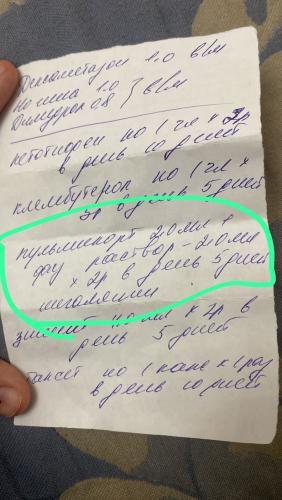 Дексометазон 1.0 в/м
Но шпа 1.0
Димедрол 0.8 } в/м
кетотифен по 1 тл × 2р
в день 10 дней
кленбутерол по 1 тл ×
2р в день 5 дней
пульмикорт 2.0 мл +
физ раствор - 2.0 мл
× 2р в день 5 дней
ингаляции
4.0 мл × 2р в
день 5 дней
по 1 капс × 1 раз
в день 10 дней